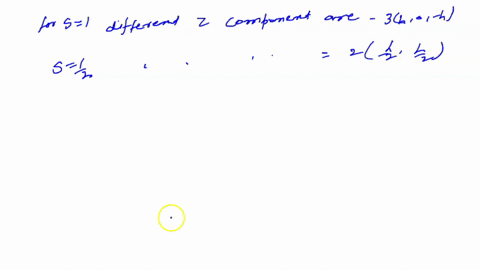 for S=1 different z component are - 3(ħ, 0, -ħ)
S=1/2 " " " " = 2(ħ/2, ħ/2)